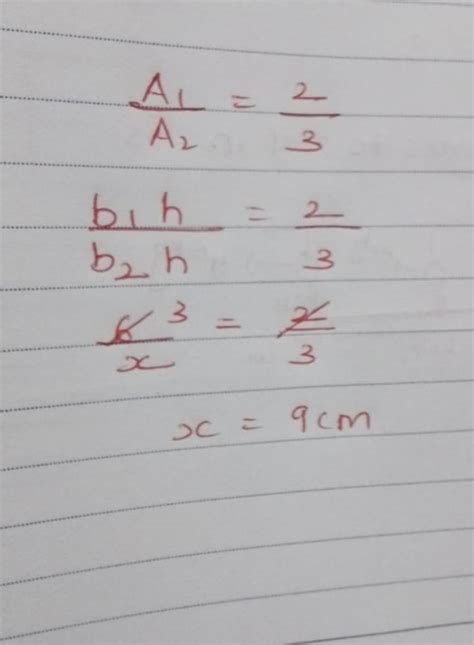 A₁/A₂ = 2/3
b₁h/b₂h = 2/3
6 3/x = 2/3
x = 9cm